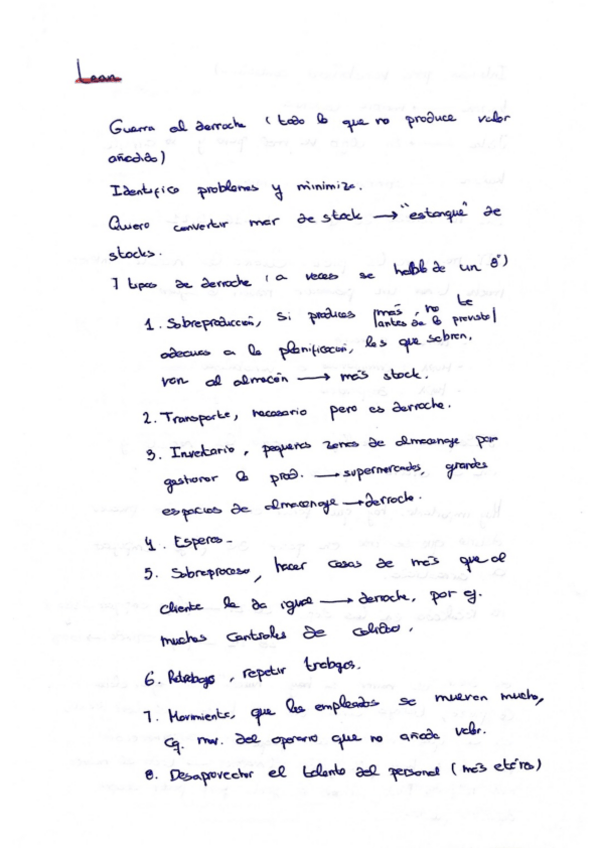 Lean
Guerra al derroche (todo lo que no produce valor
añadido)
Identifico problemas y minimizo.
Quiero convertir mar de stock → "estanque" de
stocks.
7 tipos de derroche (a veces se habla de un 8º)
1. Sobreproducción, si produces |más, no te
|antes de lo previsto|
adecuas a la planificación, los que sobren,
van al almacén → más stock.
2. Transporte, necesario pero es derroche.
3. Inventario, pequeñas zonas de almacenaje por
gestionar la prod. → supermercados, grandes
espacios de almacenaje → derroche.
4. Esperas -
5. Sobreproceso, hacer cosas de más que al
cliente le da igual → derroche, por ej.
muchos controles de calidad.
6. Retrabajo, repetir trabajos.
7. Movimiento, que los empleados se muevan mucho,
mov. del operario que no añada valor.
8. Desaprovechar el talento del personal (más etéreo)